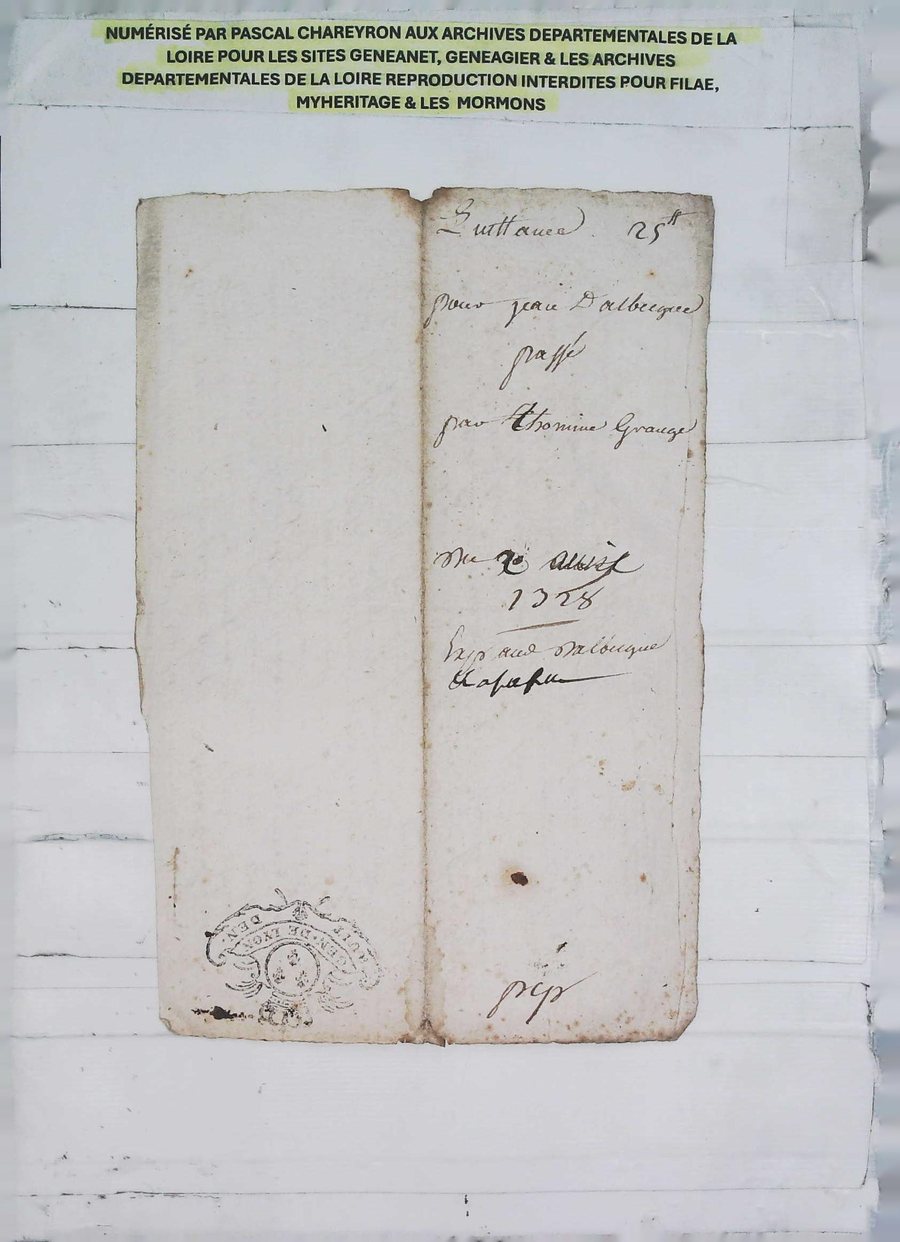 NUMÉRISÉ PAR PASCAL CHAREYRON AUX ARCHIVES DEPARTEMENTALES DE LA
LOIRE POUR LES SITES GENEANET, GENEAGIER & LES ARCHIVES
DEPARTEMENTALES DE LA LOIRE REPRODUCTION INTERDITES POUR FILAE,
MYHERITAGE & LES MORMONS
Quittance 25tt
pour jean Dalbegue
passé
par Thomine Grange
Du avril
1728
GEN. DE LYON